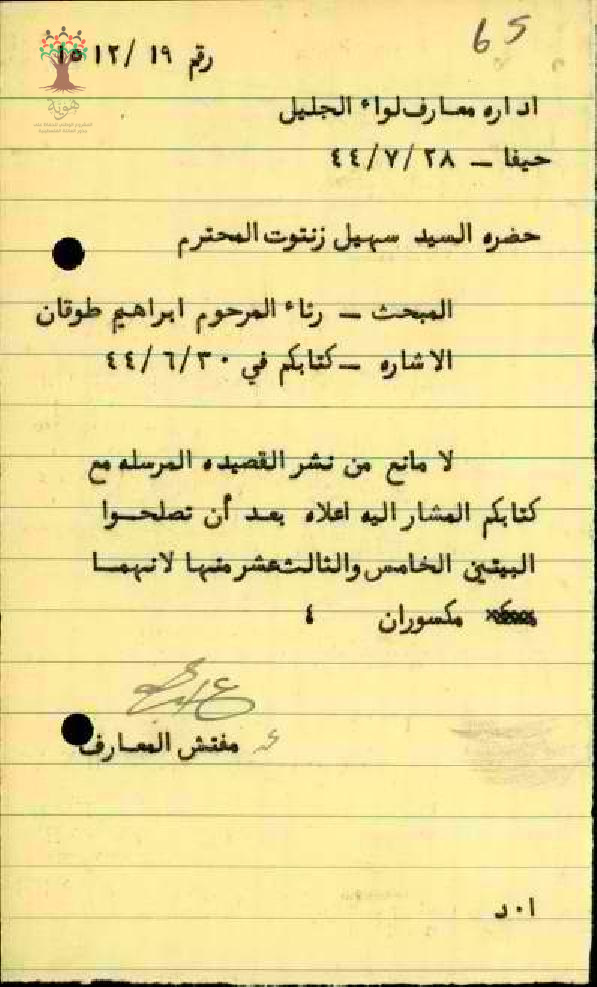 65
رقم ١٩ /١٢ ١٥
هوية
اداره معارف لواء الجليل
حيفا ــ ٢٨ /٧ /٤٤
حضره السيد سهيل زنتوت المحترم
المبحث ــ رثاء المرحوم ابراهيم طوقان
الاشاره ــ كتابكم في ٣٠ /٦ /٤٤
لا مانع من نشر القصيده المرسله مع
كتابكم المشار اليه اعلاه بعد أن تصلحوا
البيتين الخامس والثالث عشر منها لانهما
مكسوران ٤
ع/ مفتش المعارف
ا٠د